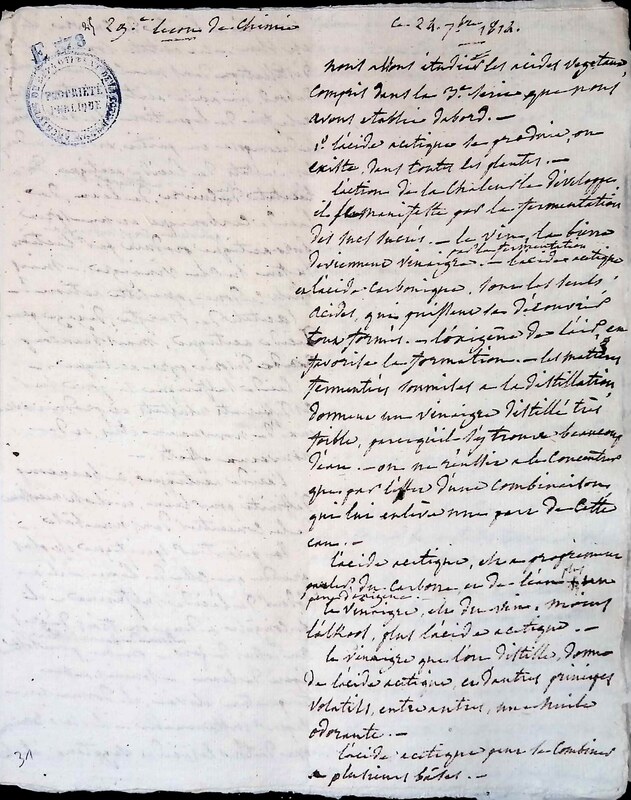 29.e leçon de Chimie
Ce 24. 7bre 1812.
E 478
PROPRIÉTÉ PUBLIQUE
nous allons étudier les acides vegetaux
compris dans la 3.e serie que nous
avons etablie dabord. —
1.° lacide acetique se produit, ou
existe, dans toutes les plantes. —
laction de la Chaleur le développe
il se manifeste par la fermentation
des sucs sucrés. — le vin, la bierre
deviennent vinaigre par la fermentation. — lacide acetique
et lacide Carbonique, sont les seuls
acides, que puissent se découvrir
tous formés. — loxigène de lair en
favorise la formation. — les matieres
fermentées soumises a la distillation
donnent un vinaigre distillé très
foible, parcequ'il s'y trouve beaucoup
d'eau. — on ne réussit a le Concentrer
que par l'effet d'une Combinaison
qui lui enlève une part de Cette
eau. —
lacide acetique, est a proprement
parler du Carbone, et de leau plus
peu d'oxigène
le vinaigre, est du vin, moins
lalkool, plus lacide acetique. —
le vinaigre que l'on distille, donne
de lacide acetique, et dautres principes
volatils, entre autres, une huile
odorante. —
lacide acetique peut se Combiner
a plusieurs bases. —
31